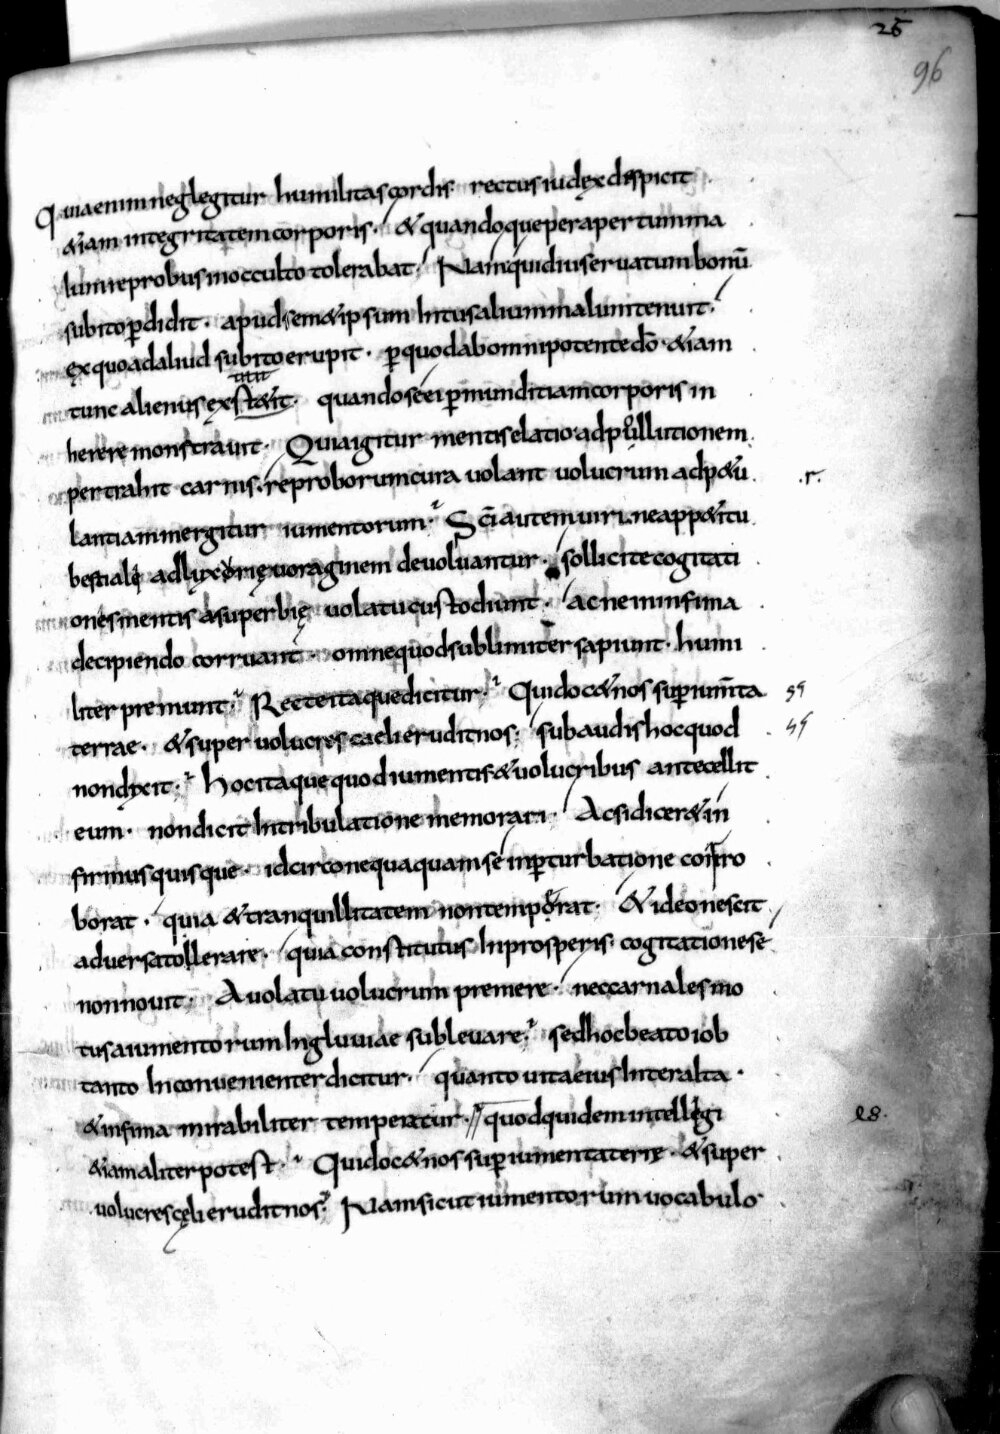 25
96
Quia enim neglegitur humilitas cordis rectus iudęx dispicit
&iam integritatem corporis · & quandoque per apertum ma
lum reprobus in occulto tolerabat · Nam qui diu seruatum bonū
subito pdidit · apud sem&ipsum intus aliud malum tenuit ·
ex quo ad aliud subito erupit · p quod ab omnipotente dō · &iam
tunc alienus exst&it · quando se ei p munditiam corporis in
herere monstrauit · Quia igitur mentis elatio ad pollutionem
pertrahit carnis · reproborum cura uolant uolucrum ad p&u
lantiam mergitur iumentorum · Scī autem uiri ne app&itu
bestiale ad luxorię uoraginem deuoluantur · sollicite cogitati
ones mentis a superbię uolatu custodiunt · ac ne in infima
decipiendo corruant · omne quod sublimiter sapiunt · humi
liter premunt · Recte itaque dicitur · Qui doc& nos sup iumta
terrae · & super uolucres caeli erudit nos · subaudis hoc quod
non dixit · hoc itaque quod iumentis & uolucribus antecellit
eum · non dicit in tribulatione memorari · Ac si dicer& in
firmus quisque · idcirco nequaquam se in pturbatione conro
borat · quia & tranquillitatem non temporat · & ideo nescit
aduersa tollerare · quia constitutus in prosperis cogitatione se
non nouit · A uolatu uolucrum premere · nec carnales mo
tus a iumentorum ingluuiae subleuare · sed hoc beato iob
tanto inconuenienter dicitur · quanto uita eius inter alta ·
& infima mirabiliter temperatur · quod quidem intellegi
&iam aliter potest · Qui doc& nos sup iumenta terrę · & super
uolucres cęli erudit nos · Nam sicut iumentorum uocabulo